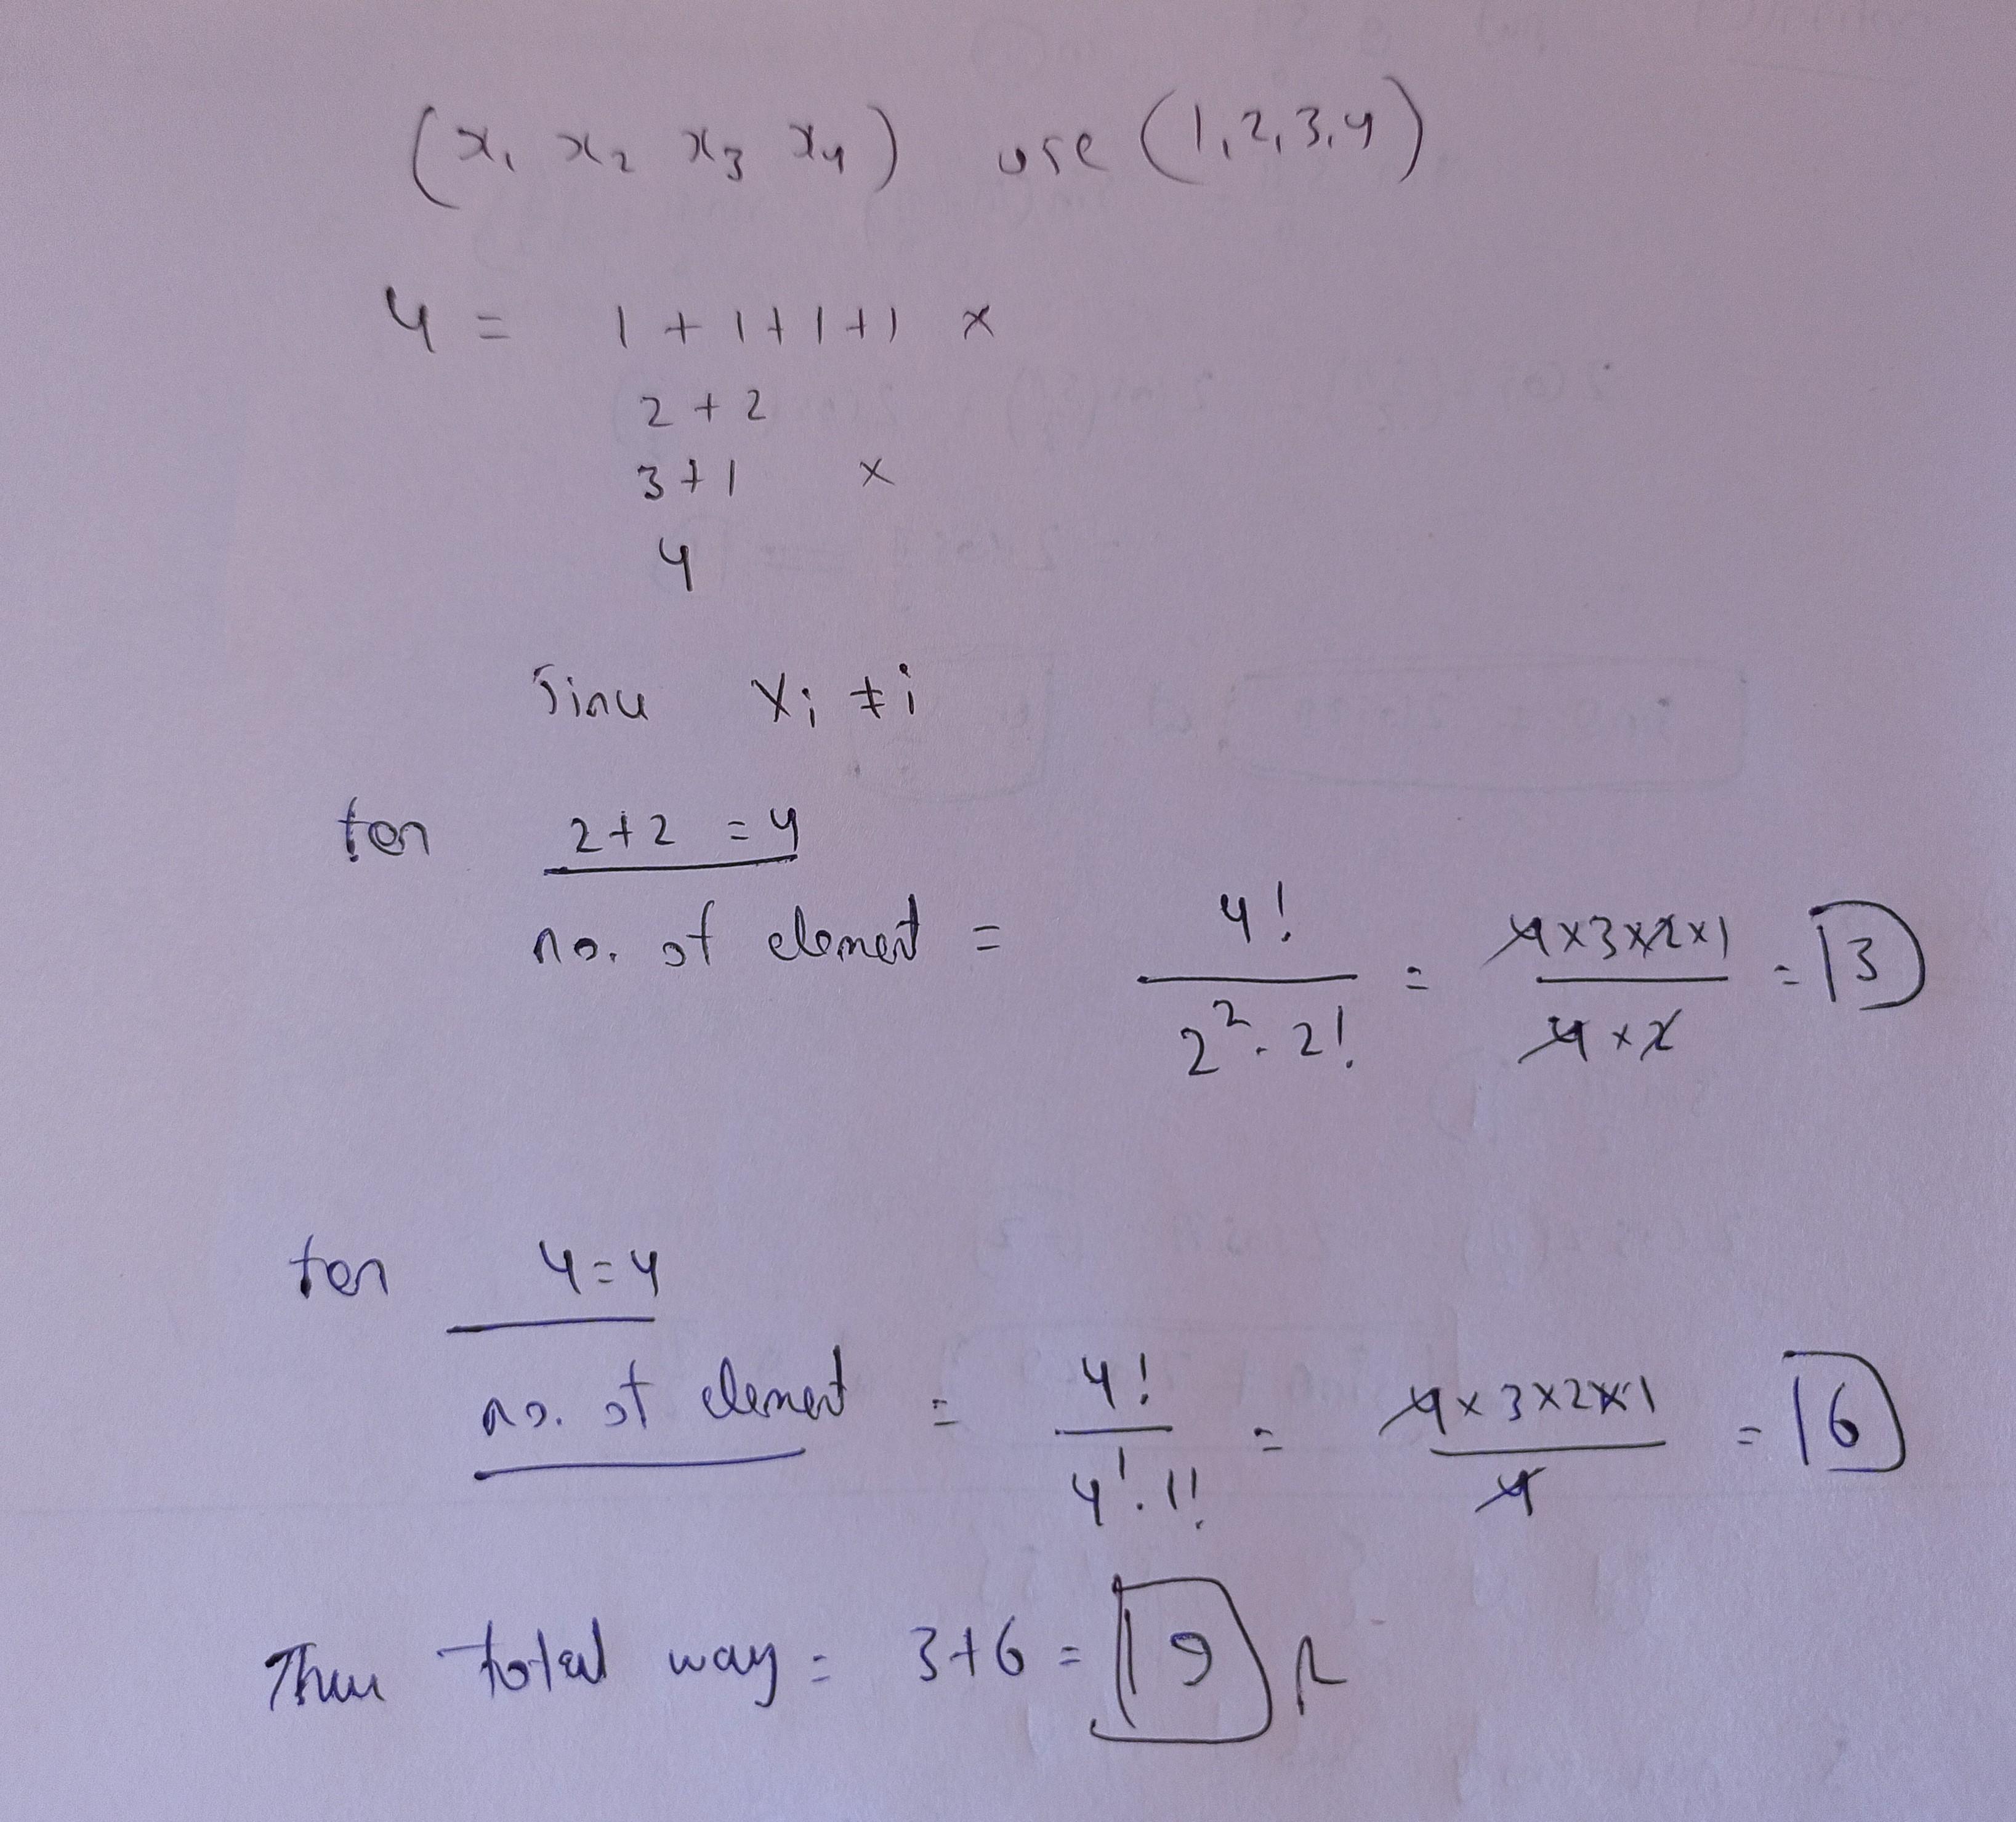 (x₁ x₂ x₃ x₄) use (1,2,3,4)
4 = 1 + 1 + 1 + 1 ×
2 + 2
3 + 1 ×
4
Since xᵢ ≠ i
for 2+2 = 4
no. of element = 4! / 2² · 2! = 4×3×2×1 / 4×2 = 3
for 4=4
no. of element = 4! / 4¹ · 1! = 4×3×2×1 / 4 = 6
total way = 3+6 = 9